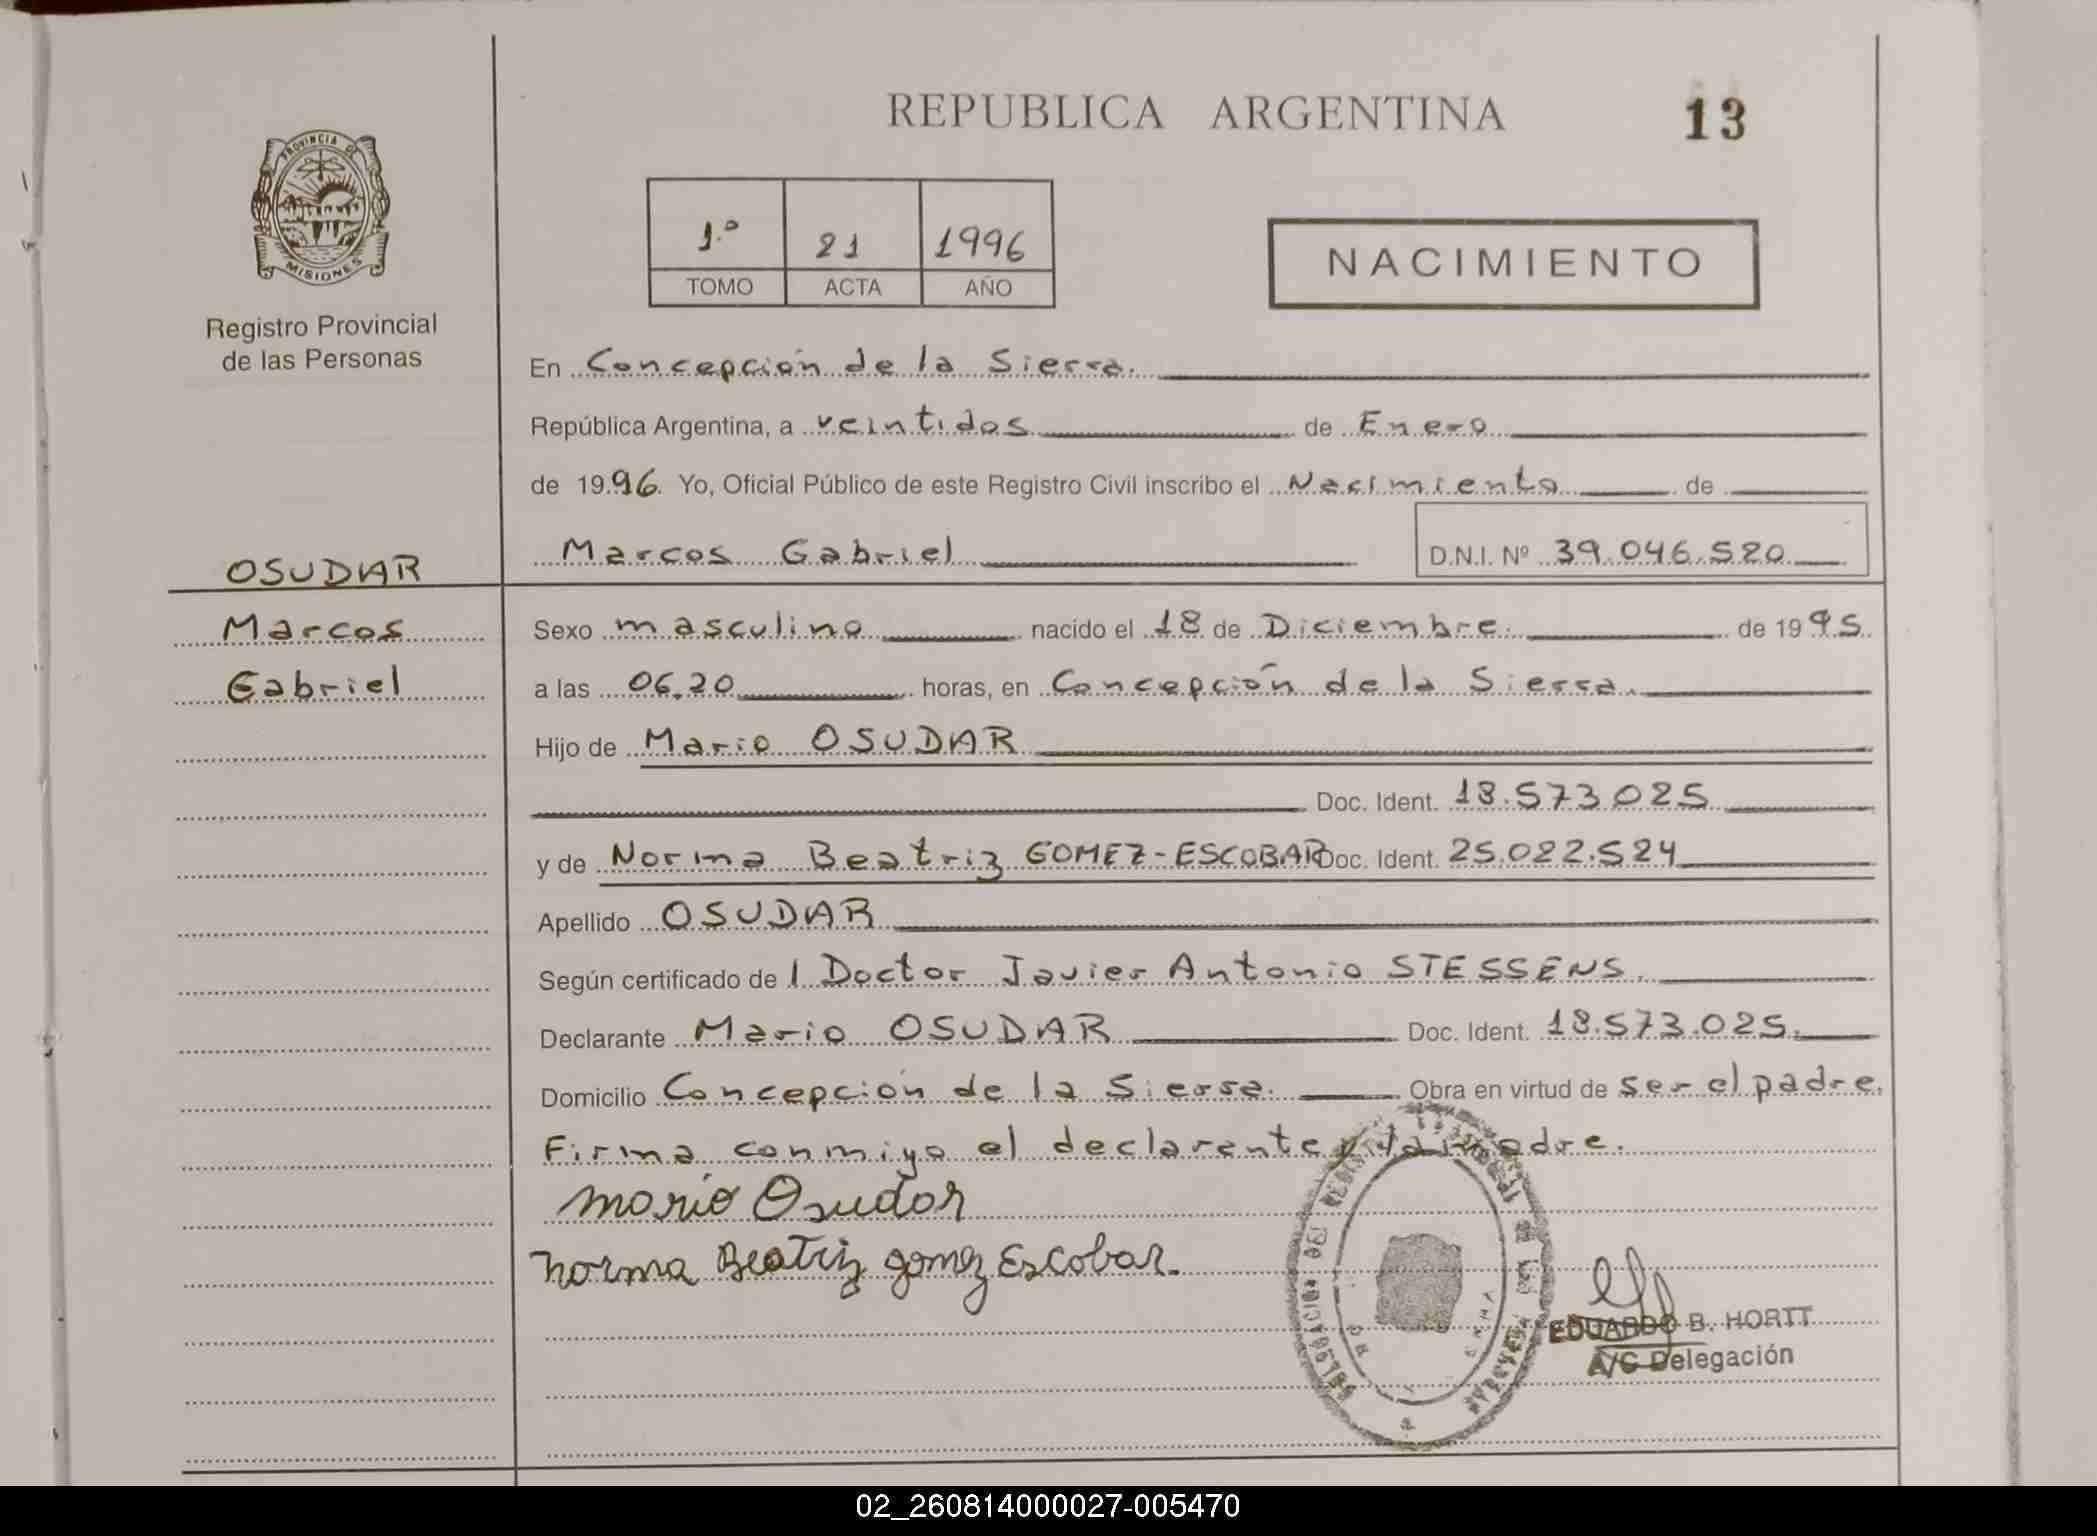 REPUBLICA ARGENTINA
13
PROVINCIA DE
MISIONES
Registro Provincial
de las Personas
1.º 21 1996
TOMO ACTA AÑO
NACIMIENTO
En Concepción de la Sierra.
República Argentina, a veintidos de Enero
de 1996. Yo, Oficial Público de este Registro Civil inscribo el Nacimiento de
Marcos Gabriel D.N.I. Nº 39.046.520
OSUDAR
Marcos
Gabriel
Sexo masculino nacido el 18 de Diciembre. de 1995.
a las 06.20 horas, en Concepción de la Sierra.
Hijo de Mario OSUDAR
Doc. Ident. 18.573.025
y de Norma Beatriz GOMEZ-ESCOBAR Doc. Ident. 25.022.524
Apellido OSUDAR
Según certificado de l Doctor Javier Antonio STESSENS.
Declarante Mario OSUDAR Doc. Ident. 18.573.025.
Domicilio Concepción de la Sierra. Obra en virtud de ser el padre.
Firma conmigo el declarante y la madre.
Mario Osudar
Norma Beatriz gomez Escobar.
EDUARDO B. HORTT
A/C Delegación
02_260814000027-005470